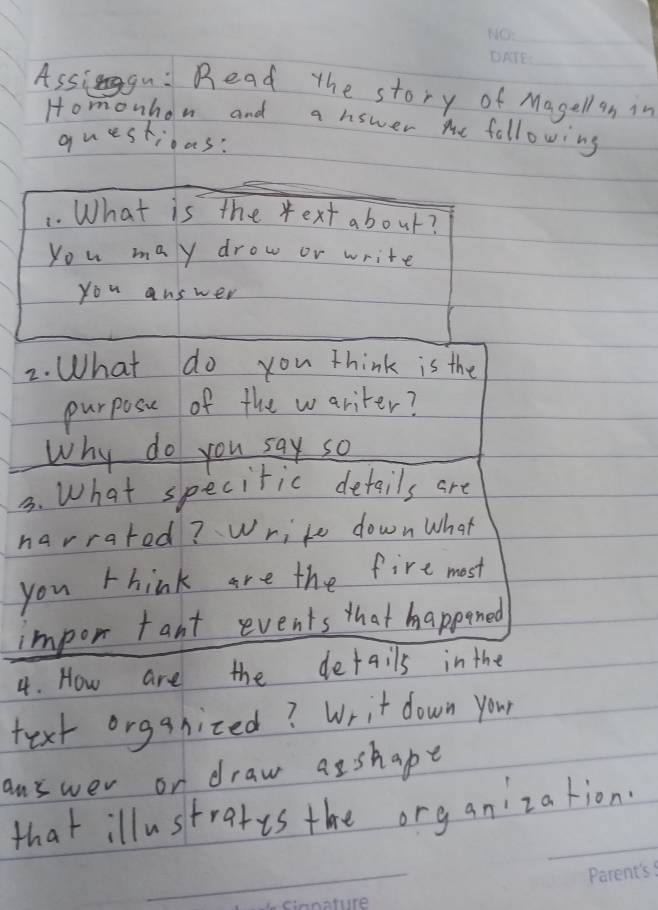 NO:
DATE:
Assinggn: Read the story of Magellan in
Homonhon and answer the following
questions:
1. What is the text about?
You may drow or write
you answer
2. What do you think is the
purpose of the wariter?
Why do you say so
3. What specific details are
narrated? Write down What
you think are the five most
important events that happened
4. How are the details in the
text organized? Writ down your
answer or draw as shape
that illustrates the organization.
Parent's S
Signature